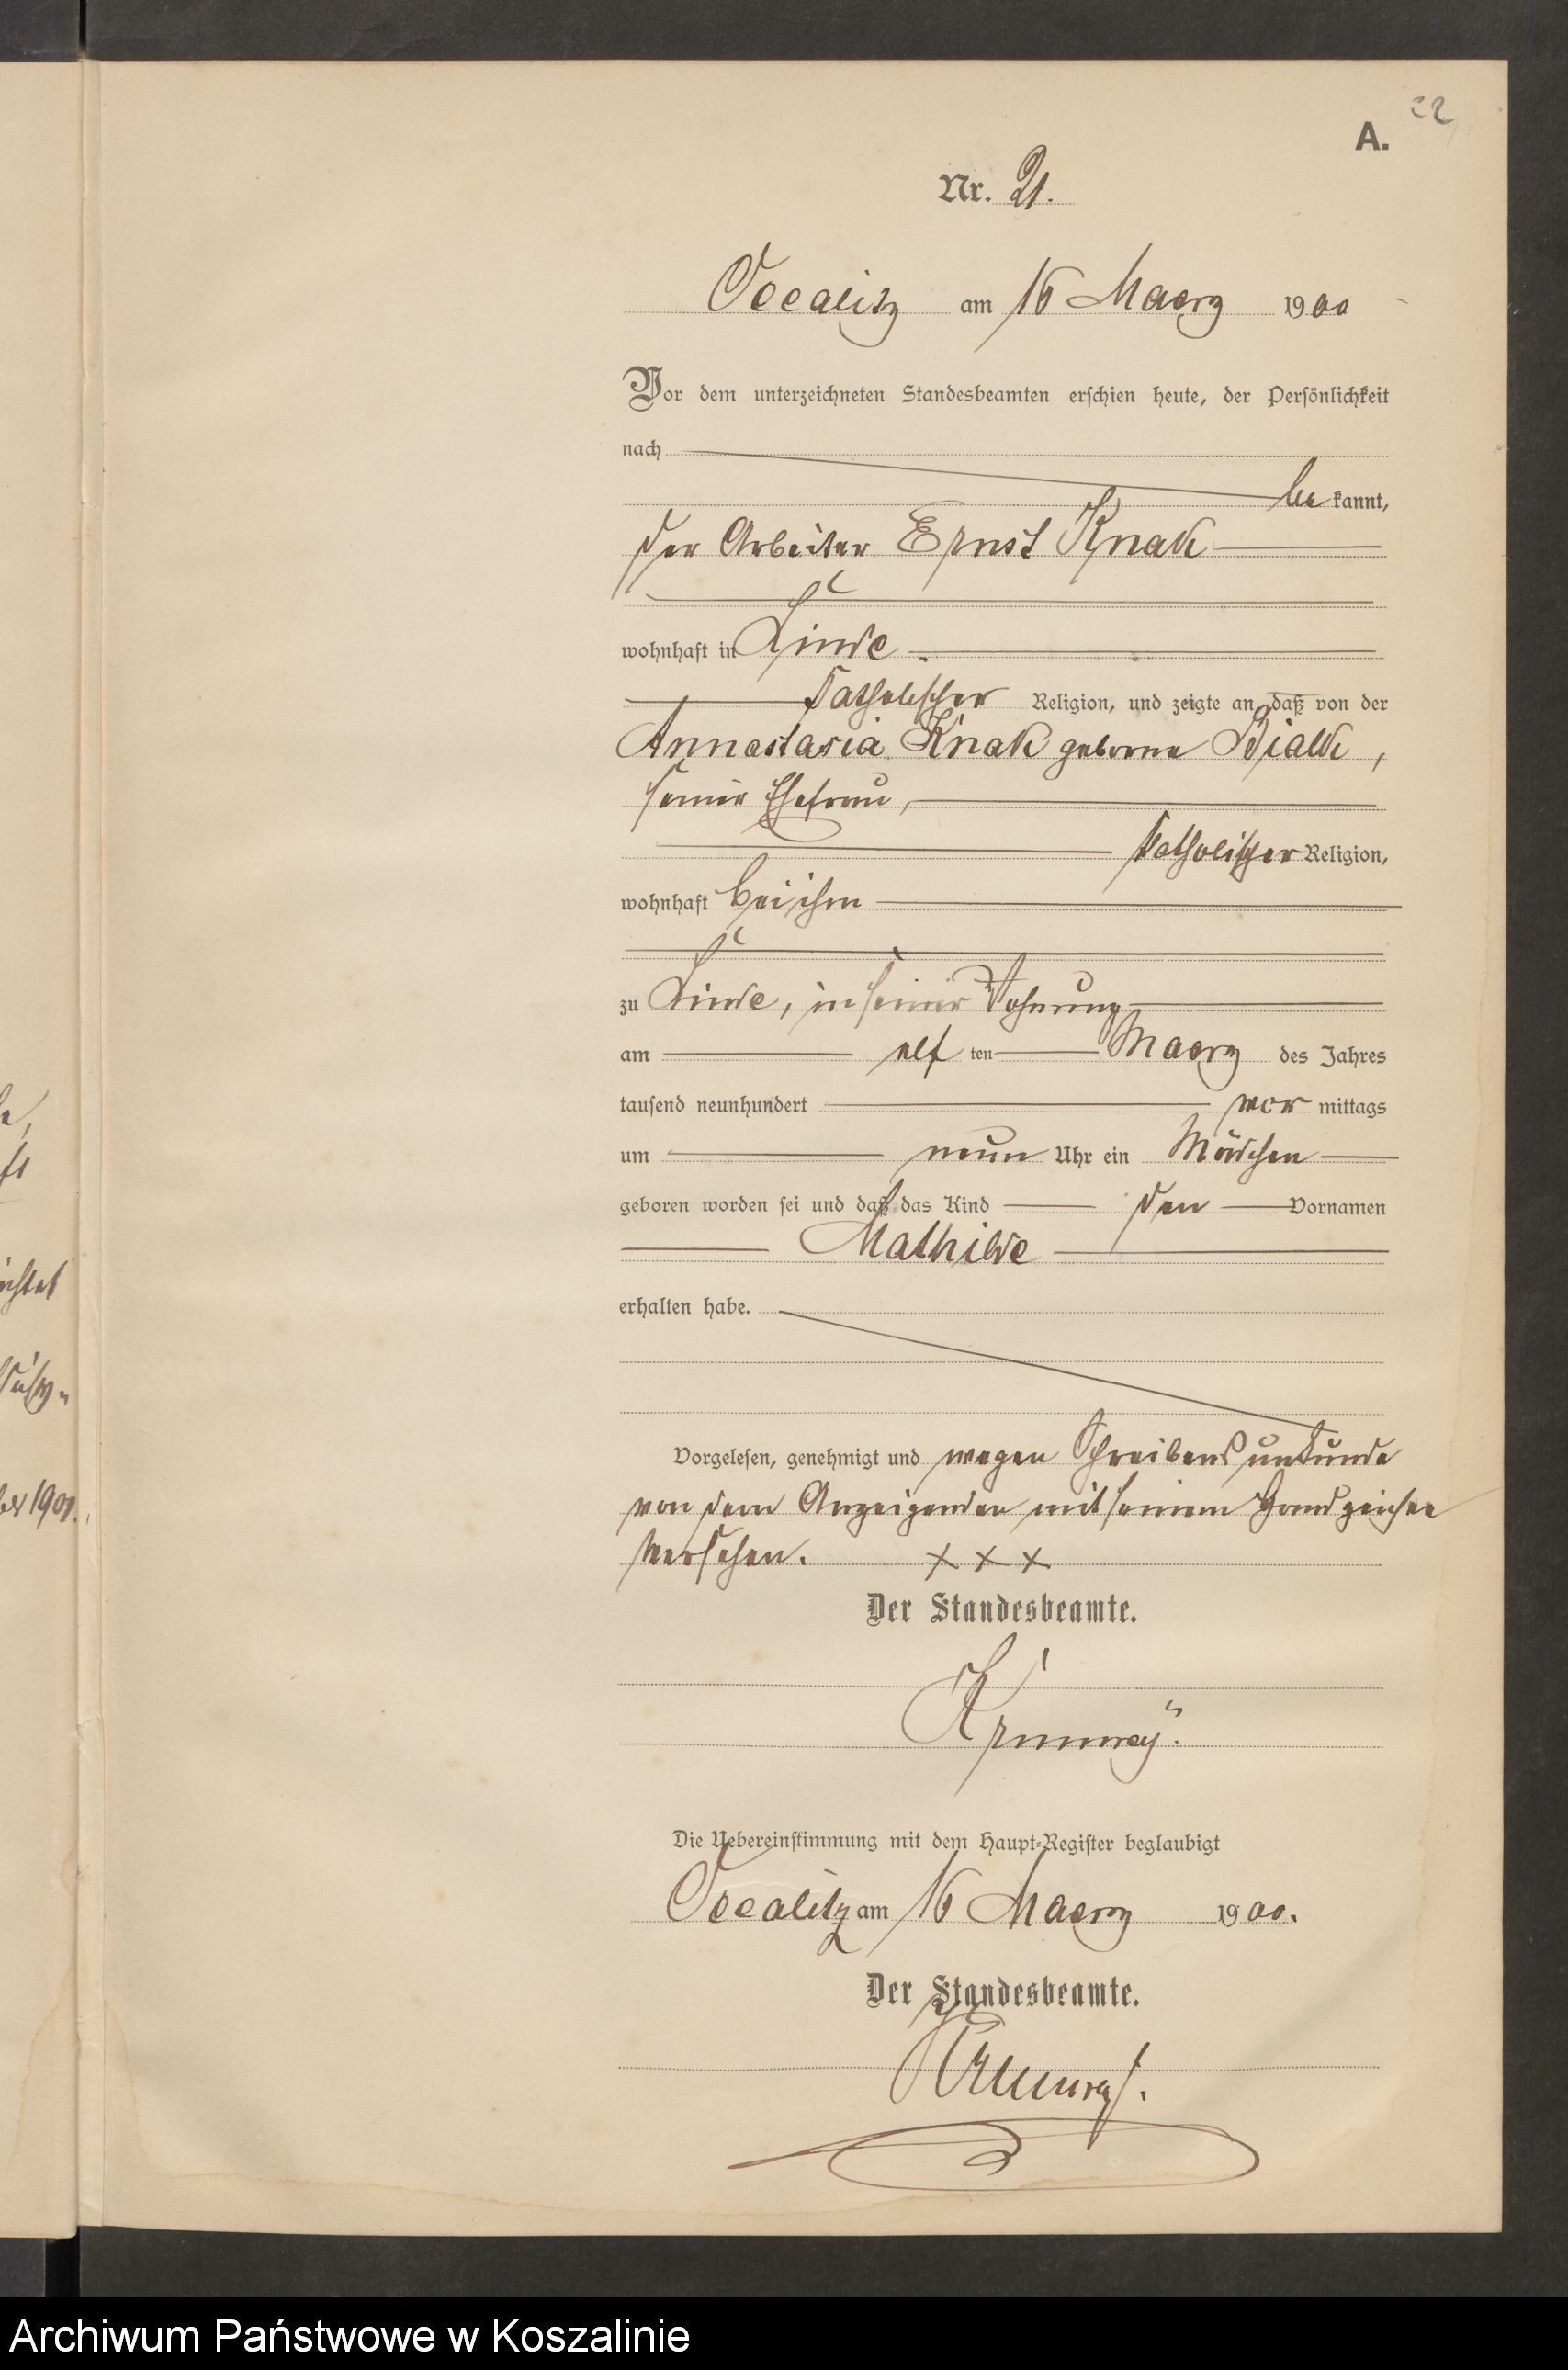 22
A.
Nr. 21.
Occalitz am 16 Maerz 1900
Vor dem unterzeichneten Standesbeamten erschien heute, der Persönlichkeit
nach
be kannt,
der Arbeiter Ernst Knak
wohnhaft in Linde
katholischer Religion, und zeigte an, daß von der
Annastasia Knak geborne Bialk,
seiner Ehefrau,
katholischer Religion,
wohnhaft bei ihm
zu Linde, in seiner Wohnung
am elf ten Maerz des Jahres
tausend neunhundert vor mittags
um neun Uhr ein Mädchen
geboren worden sei und daß das Kind den Vornamen
Mathilde
erhalten habe.
Vorgelesen, genehmigt und wegen Schreibensunkunde
von dem Anzeigenden mit seinem Handzeichen
versehen. x x x
Der Standesbeamte.
Die Uebereinstimmung mit dem Haupt-Register beglaubigt
Occalitz am 16 Maerz 1900.
Der Standesbeamte.
Archiwum Państwowe w Koszalinie